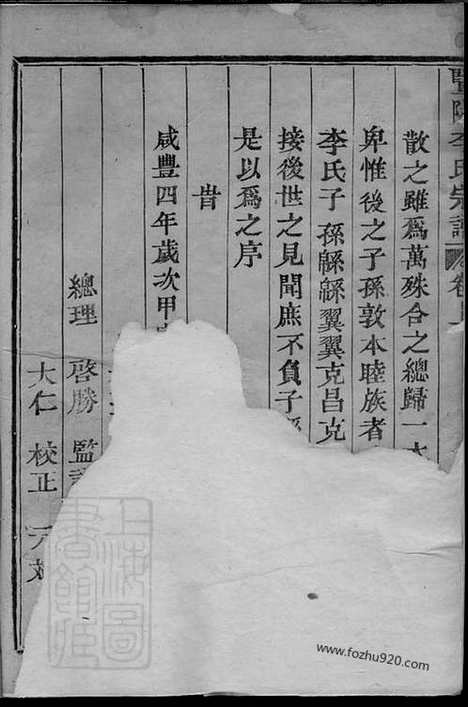 暨陽李氏宗譜 卷上
散之雖爲萬殊合之總歸一本
卑惟後之子孫敦本睦族者
李氏子孫緜緜翼翼克昌克
接後世之見聞庶不負子孫
是以爲之序
旹
咸豐四年歲次甲寅
總理 啓勝 監
大仁 校正
上海圖書館藏
www.fozhu920.com